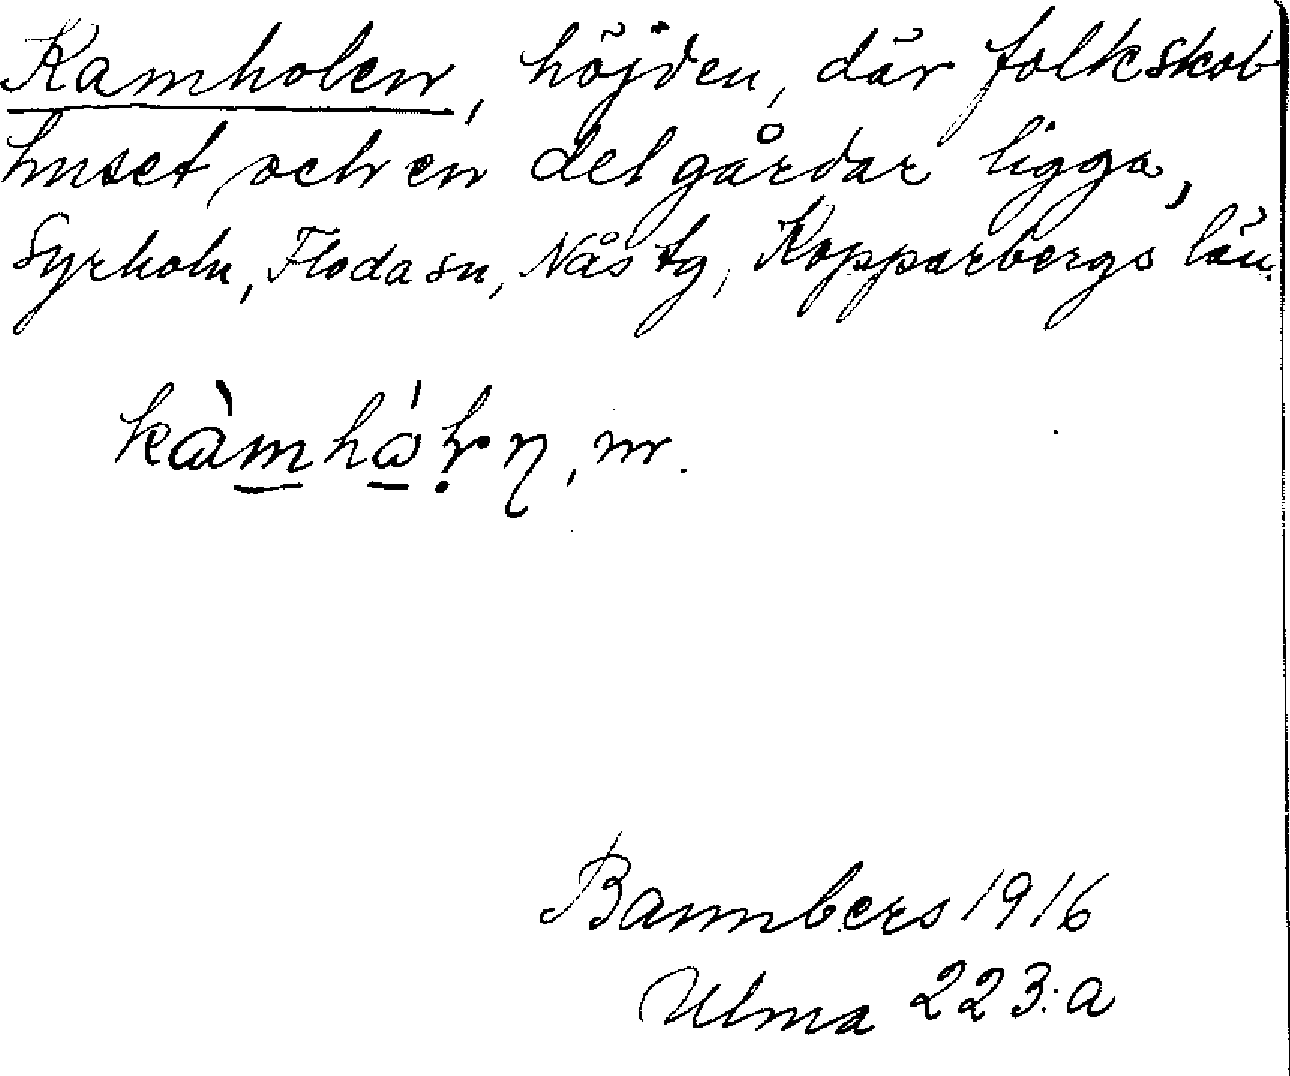 Kamholen, höjden, där folkskol
huset och en del gårdar ligga,
Syrholn, Floda sn, Nås tg, Kopparbergs län.
kàmhó̱ḥŋ, m.
Bannbers 1916
Ulma 223:a